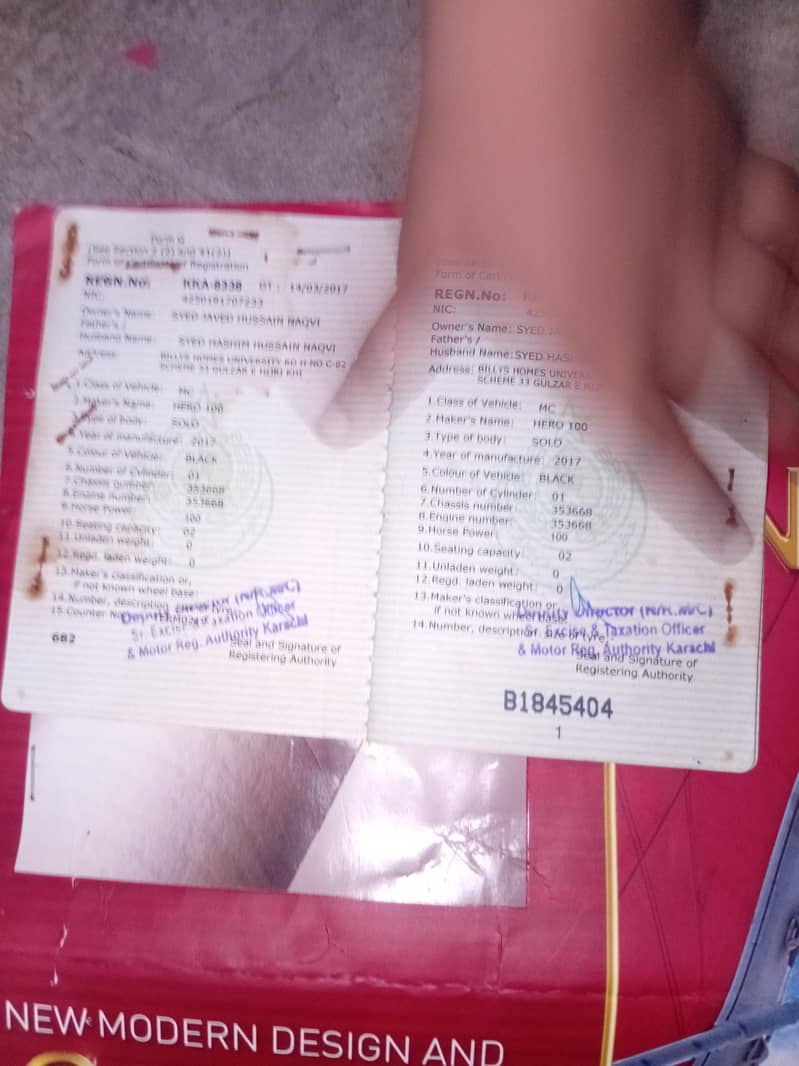 Form G
[See Section 2 (2) and 41(2)]
Form of Certificate of Registration
REGN.No: KKA-8338 DT: 14/03/2017
NIC:
Owner's Name: SYED JAVED HUSSAIN NAQVI
Father's /
Husband Name: SYED HASHIM HUSSAIN NAQVI
Address: BILLYS HOMES UNIVERSITY RD H NO C-82
SCHEME 33 GULZAR E HIJRI KHI
1.Class of Vehicle: MC
2.Maker's Name: HERO 100
3.Type of body: SOLO
4.Year of manufacture: 2017
5.Colour of Vehicle: BLACK
6.Number of Cylinder: 01
7.Chassis number: 353668
8.Engine number: 353668
9.Horse Power: 100
10.Seating capacity: 02
11.Unladen weight: 0
12.Regd. laden weight: 0
13.Maker's classification or,
if not known wheel base:
14.Number, description
15.Counter No
Deputy Director (M/R.WC)
Sr. Excise & Taxation Officer
& Motor Reg. Authority Karachi
682
Seal and Signature of
Registering Authority
Form of Certi
REGN.No:
NIC:
Owner's Name: SYED JA
Father's /
Husband Name: SYED HASH
Address: BILLYS HOMES UNIVER
SCHEME 33 GULZAR E
1.Class of Vehicle: MC
2.Maker's Name: HERO 100
3.Type of body: SOLO
4.Year of manufacture: 2017
5.Colour of Vehicle: BLACK
6.Number of Cylinder: 01
7.Chassis number: 353668
8.Engine number: 353668
9.Horse Power: 100
10.Seating capacity: 02
11.Unladen weight: 0
12.Regd. laden weight: 0
13.Maker's classification or,
if not known wheel base
14.Number, description
Deputy Director (M/R.WC)
Sr. Excise & Taxation Officer
& Motor Reg. Authority Karachi
Seal and Signature of
Registering Authority
B1845404
1
NEW MODERN DESIGN AND